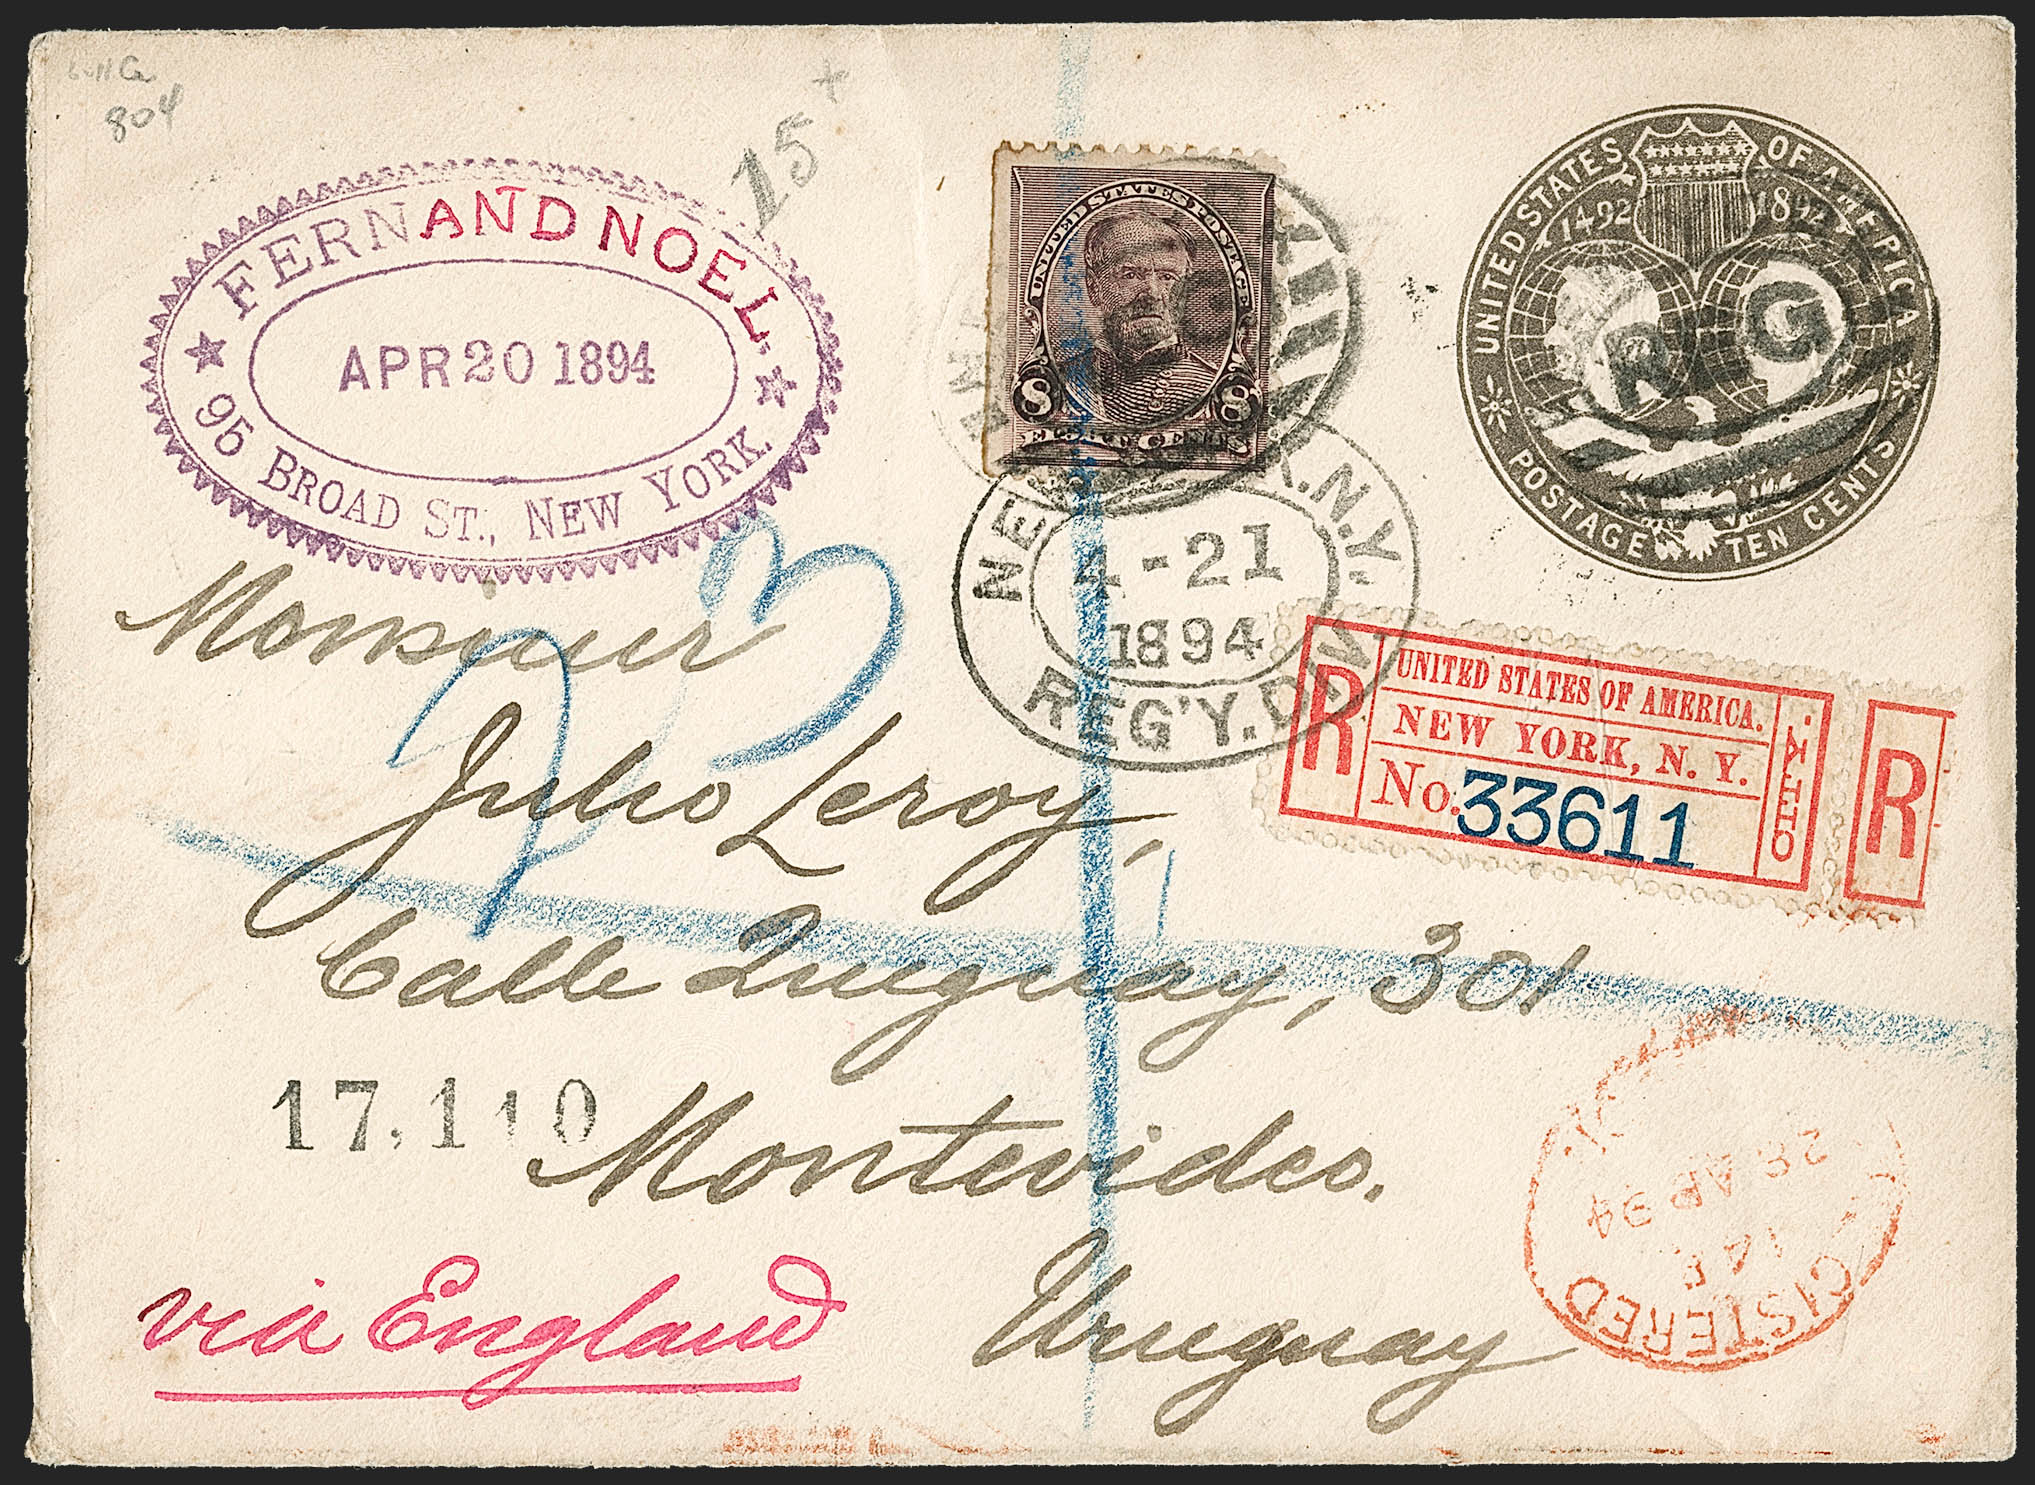 804
15 +
FERNAND NOEL.
APR 20 1894
95 BROAD ST., NEW YORK.
UNITED STATES POSTAGE
8 8
EIGHT CENTS
UNITED STATES OF AMERICA
1492 1892
POSTAGE TEN CENTS
NEW YORK, N.Y.
4-21
1894
REG'Y. DIV.
R
UNITED STATES OF AMERICA.
NEW YORK, N. Y.
No. 33611
R
Monsieur
Julio Leroy,
Calle Uruguay, 301
Montevideo.
Uruguay
17,110
via England
REGISTERED
28 AP 94